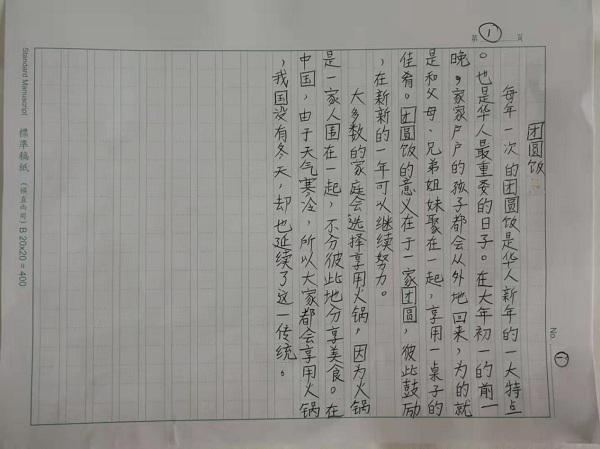 第1页
团圆饭
每年一次的团圆饭是华人新年的一大特点
。也是华人最重要的日子。在大年初一的前一
晚，家家户户的孩子都会从外地回来，为的就
是和父母、兄弟姐妹聚在一起，享用一桌子的
佳肴。团圆饭的意义在于一家团圆，彼此鼓励
，在新新的一年可以继续努力。
大多数的家庭会选择享用火锅，因为火锅
是一家人围在一起，不分彼此地分享美食。在
中国，由于天气寒冷，所以大家都会享用火锅
，我国没有冬天，却也延续了这一传统。
No 1
Standard Manuscript 標準稿紙 （橫直兩用）B 20x20=400